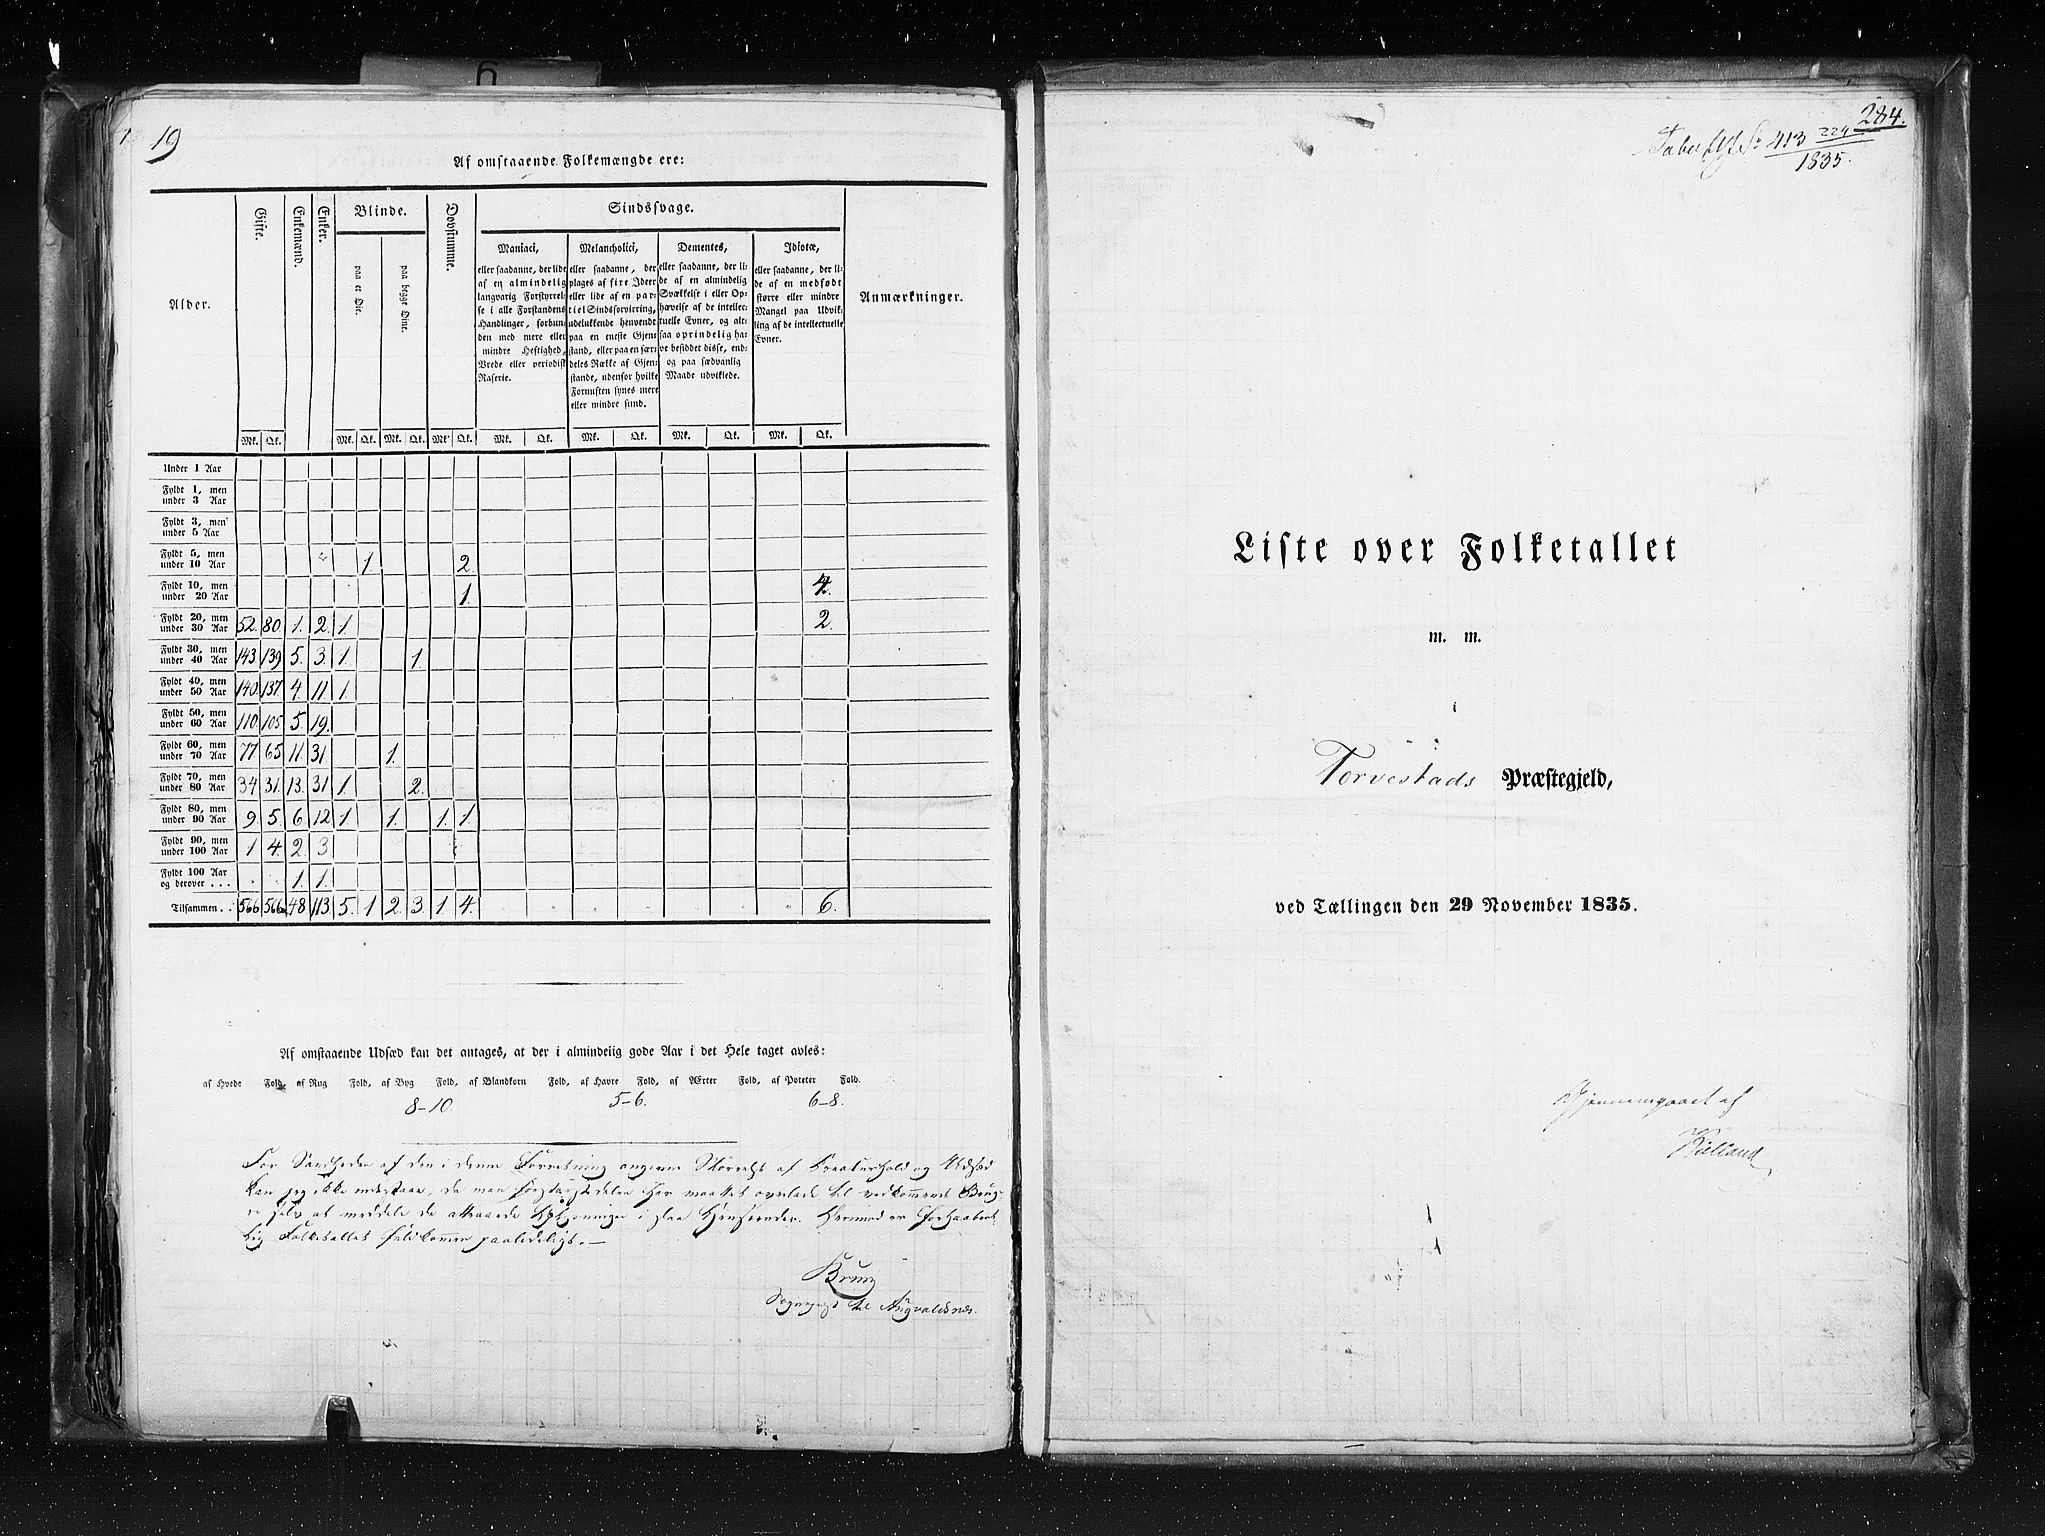 6
19
Af omstaaende Folkemængde ere:
Alder.
Gifte.
Enkemænd.
Enker.
Blinde.
paa et Øie.
paa begge Øine.
Døvstumme.
Sindssvage.
Maniaci,
eller saadanne, der lide
af en almindelig
langvarig Forstyrrel-
se i alle Forstandens
Handlinger, forbun-
den med mere eller
mindre Heftighed,
Vrede eller periodisk
Raserie.
Melancholici,
eller saadanne, der
plages af fixe Ideer
eller lide af en par-
tiel Sindsforvirring,
udelukkende henvendt
paa en eneste Gjen-
stand, eller paa en sær-
deles Række af Gjen-
stande, udenfor hvilke
Fornuften synes mere
eller mindre sund.
Dementes,
eller saadanne, der li-
de af en almindelig
Svækkelse i eller Op-
hævelse af de intellec-
tuelle Evner, og alt-
saa oprindelig ha-
ve besiddet disse, end-
og paa sædvanlig
Maade udviklede.
Idiotæ,
eller saadanne, der li-
de af en medfødt
større eller mindre
Mangel paa Udvik-
ling af de intellectuelle
Evner.
Anmærkninger.
Mk. Qk. Mk. Qk. Mk. Qk. Mk. Qk. Mk. Qk. Mk. Qk. Mk. Qk. Mk. Qk.
Under 1 Aar
Fyldt 1, men
under 3 Aar
Fyldt 3, men
under 5 Aar
Fyldt 5, men
under 10 Aar 1 2.
Fyldt 10, men
under 20 Aar 1. 4.
Fyldt 20, men
under 30 Aar 52. 80. 1. 2. 1. 2.
Fyldt 30, men
under 40 Aar 143. 139 5. 3. 1. 1.
Fyldt 40, men
under 50 Aar 140. 137. 4. 11. 1.
Fyldt 50, men
under 60 Aar 110. 105 5. 19.
Fyldt 60, men
under 70 Aar 77 65 11. 31 1.
Fyldt 70, men
under 80 Aar 34 31. 13. 31 1. 2.
Fyldt 80, men
under 90 Aar 9 5. 6 12 1 1. 1. 1
Fyldt 90, men
under 100 Aar 1 4. 2 3
Fyldt 100 Aar
og derover . . . 1. 1.
Tilsammen . . 566 566 48 113 5. 1 2. 3. 1. 4. 6.
Af omstaaende Udsæd kan det antages, at der i almindelig gode Aar i det Hele taget avles:
af Hvede Fold, af Rug Fold, af Byg Fold, af Blandkorn Fold, af Havre Fold, af Ærter Fold, af Poteter Fold.
8-10. 5-6. 6-8.
For Sandheden af den i denne Forretning angivne Størrelse af Kreaturhold og Udsæd
kan jeg ikke indestaae, da man forstørstedelen har maattet overlade til vedkommende Brug-
e selv at meddele de attraaede Oplysninger i slaa Henseender. Derimod er forhaabent-
lig Folketallet fuldkommen paalideligt. —
Krung
Sognepræst til Augvaldsnæs.
284.
413 224
1835.
Liste over Folketallet
m. m.
i
Torvestads Præstegjeld,
ved Tællingen den 29 November 1835.
Gjennemgaaet af
Kielland